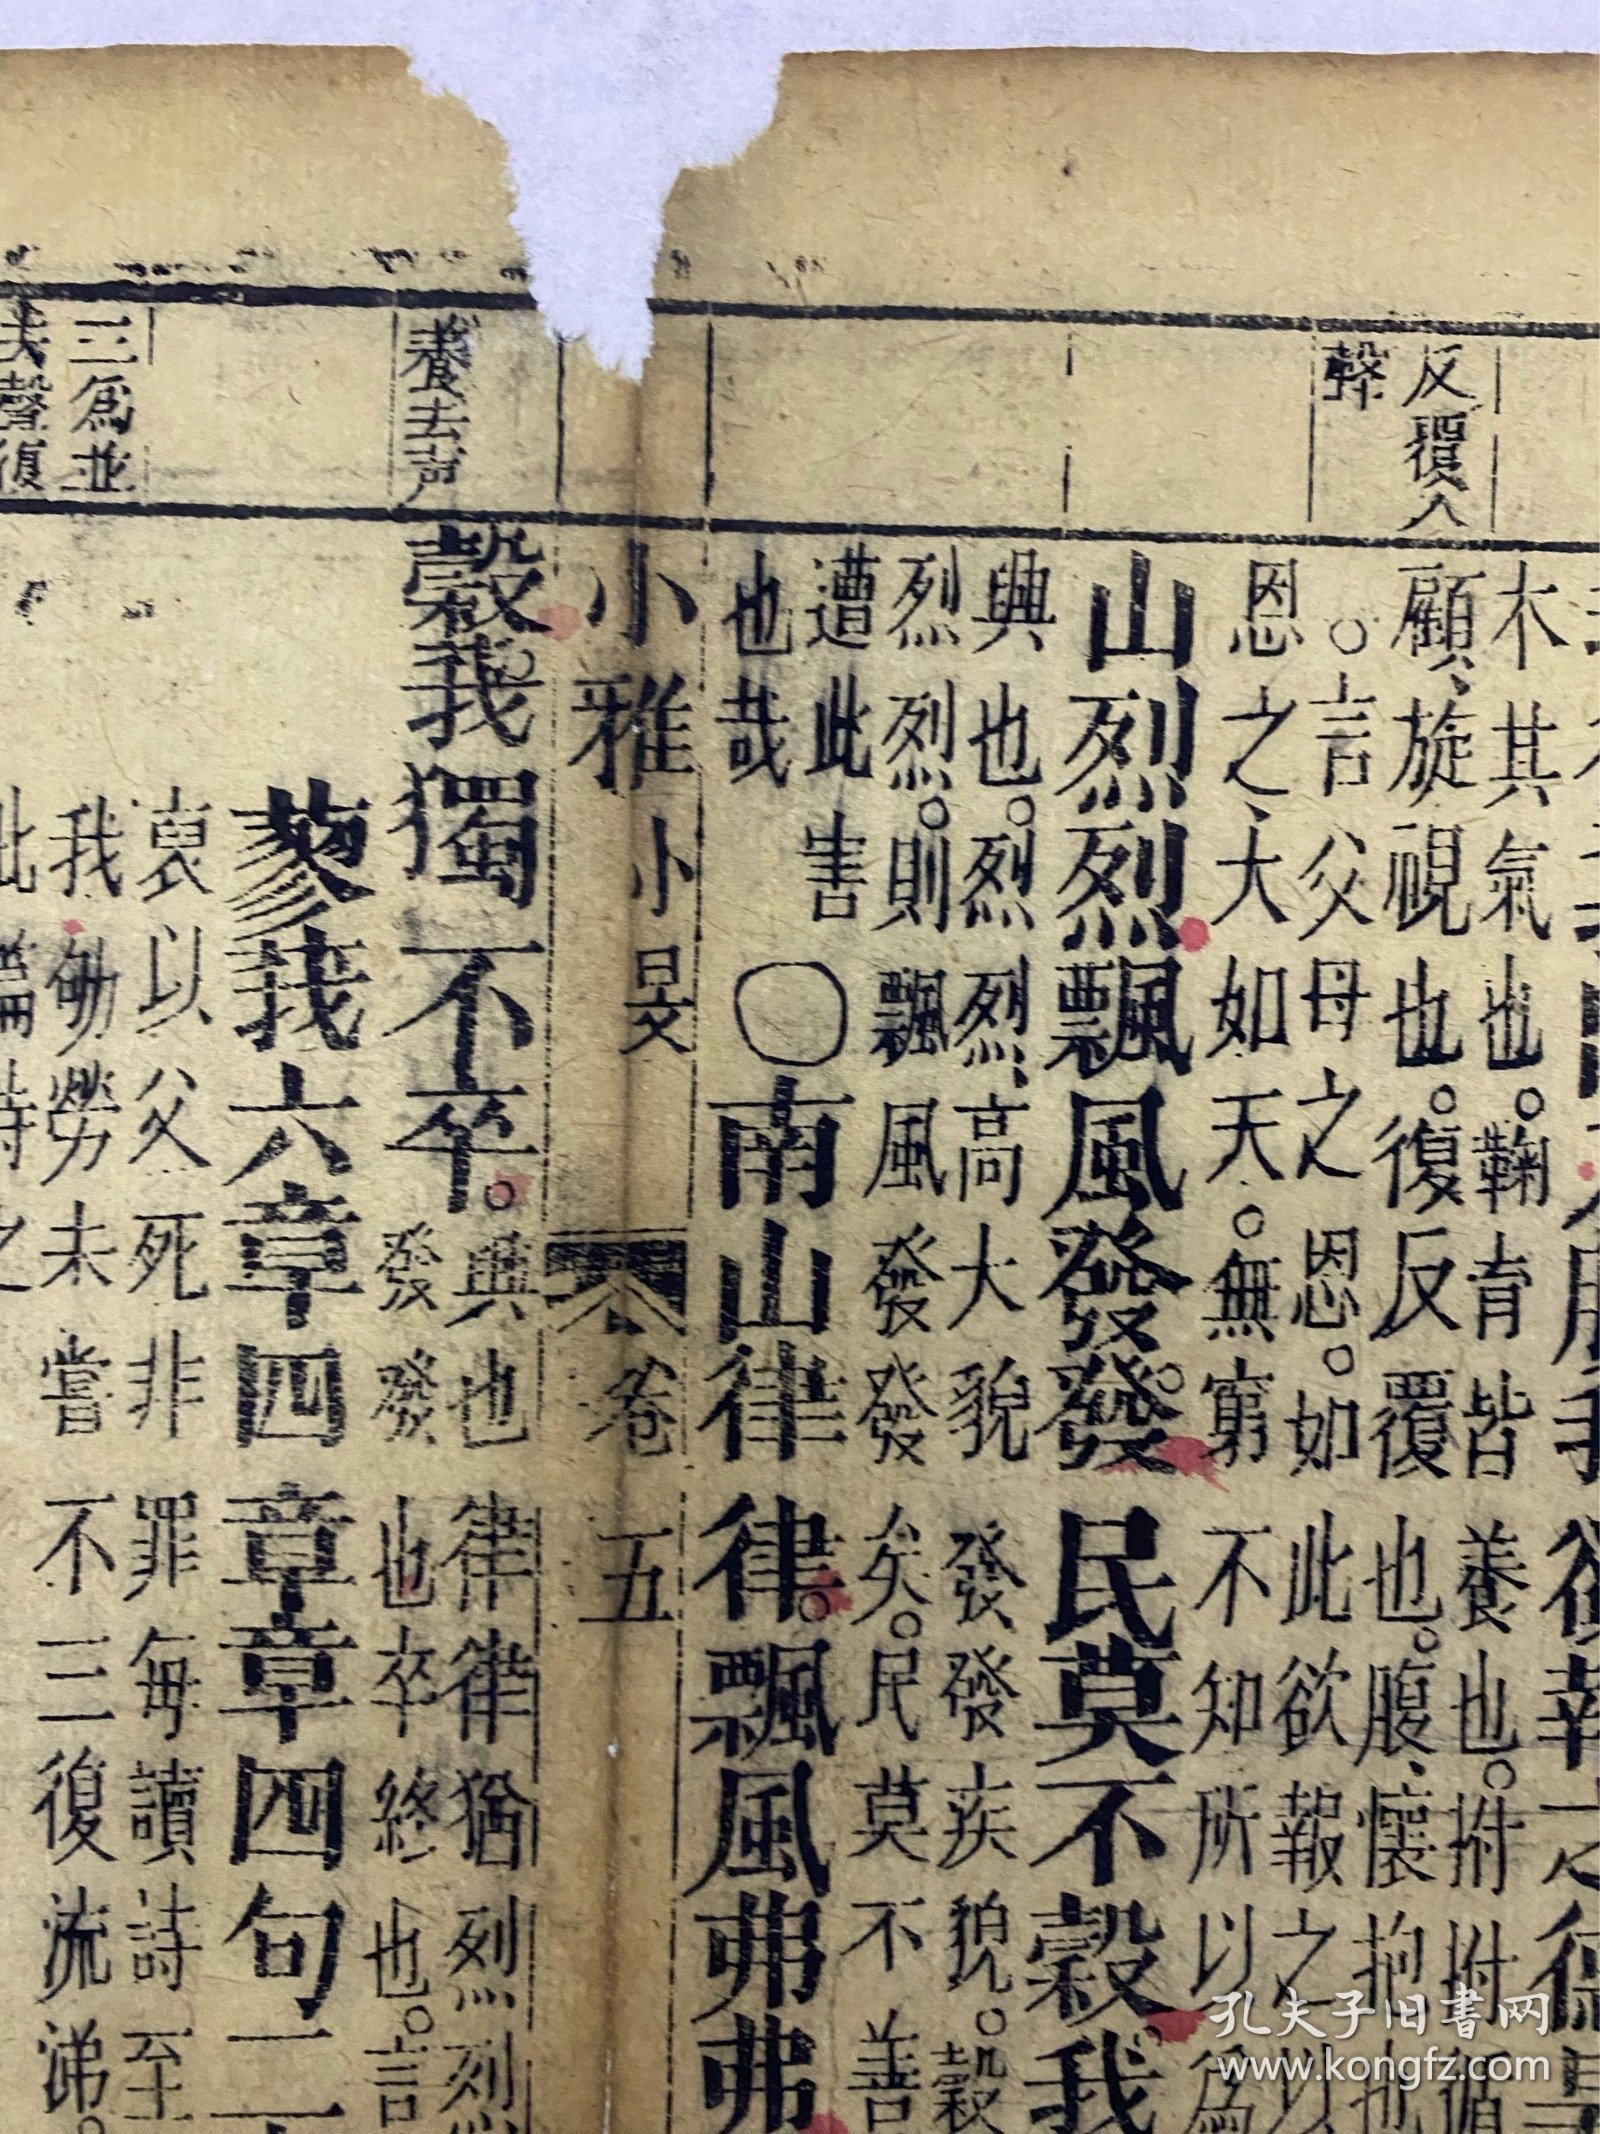 反覆入
聲
養去声
三爲並
木其氣也。鞠育皆養也。拊拊循
顧、旋視也。復反覆也。腹、懷抱也
○言父母之恩。如此欲報之以
恩之、大如天。無窮不知所以爲
山烈烈飄風發發。民莫不穀我
興也。烈烈、高大貌發發疾貌。穀
烈烈。則飄風發發矣。民莫不善
遭此害
也哉
○南山律律。飄風弗弗
小雅 小旻 卷五
穀我獨不卒。
興也律律猶烈烈
發發也卒終也。言
蓼莪六章四章章四句二
哀以父死非罪每讀詩至
我劬勞未嘗不三復流涕。
此篇詩之
孔夫子旧書网
www.kongfz.com